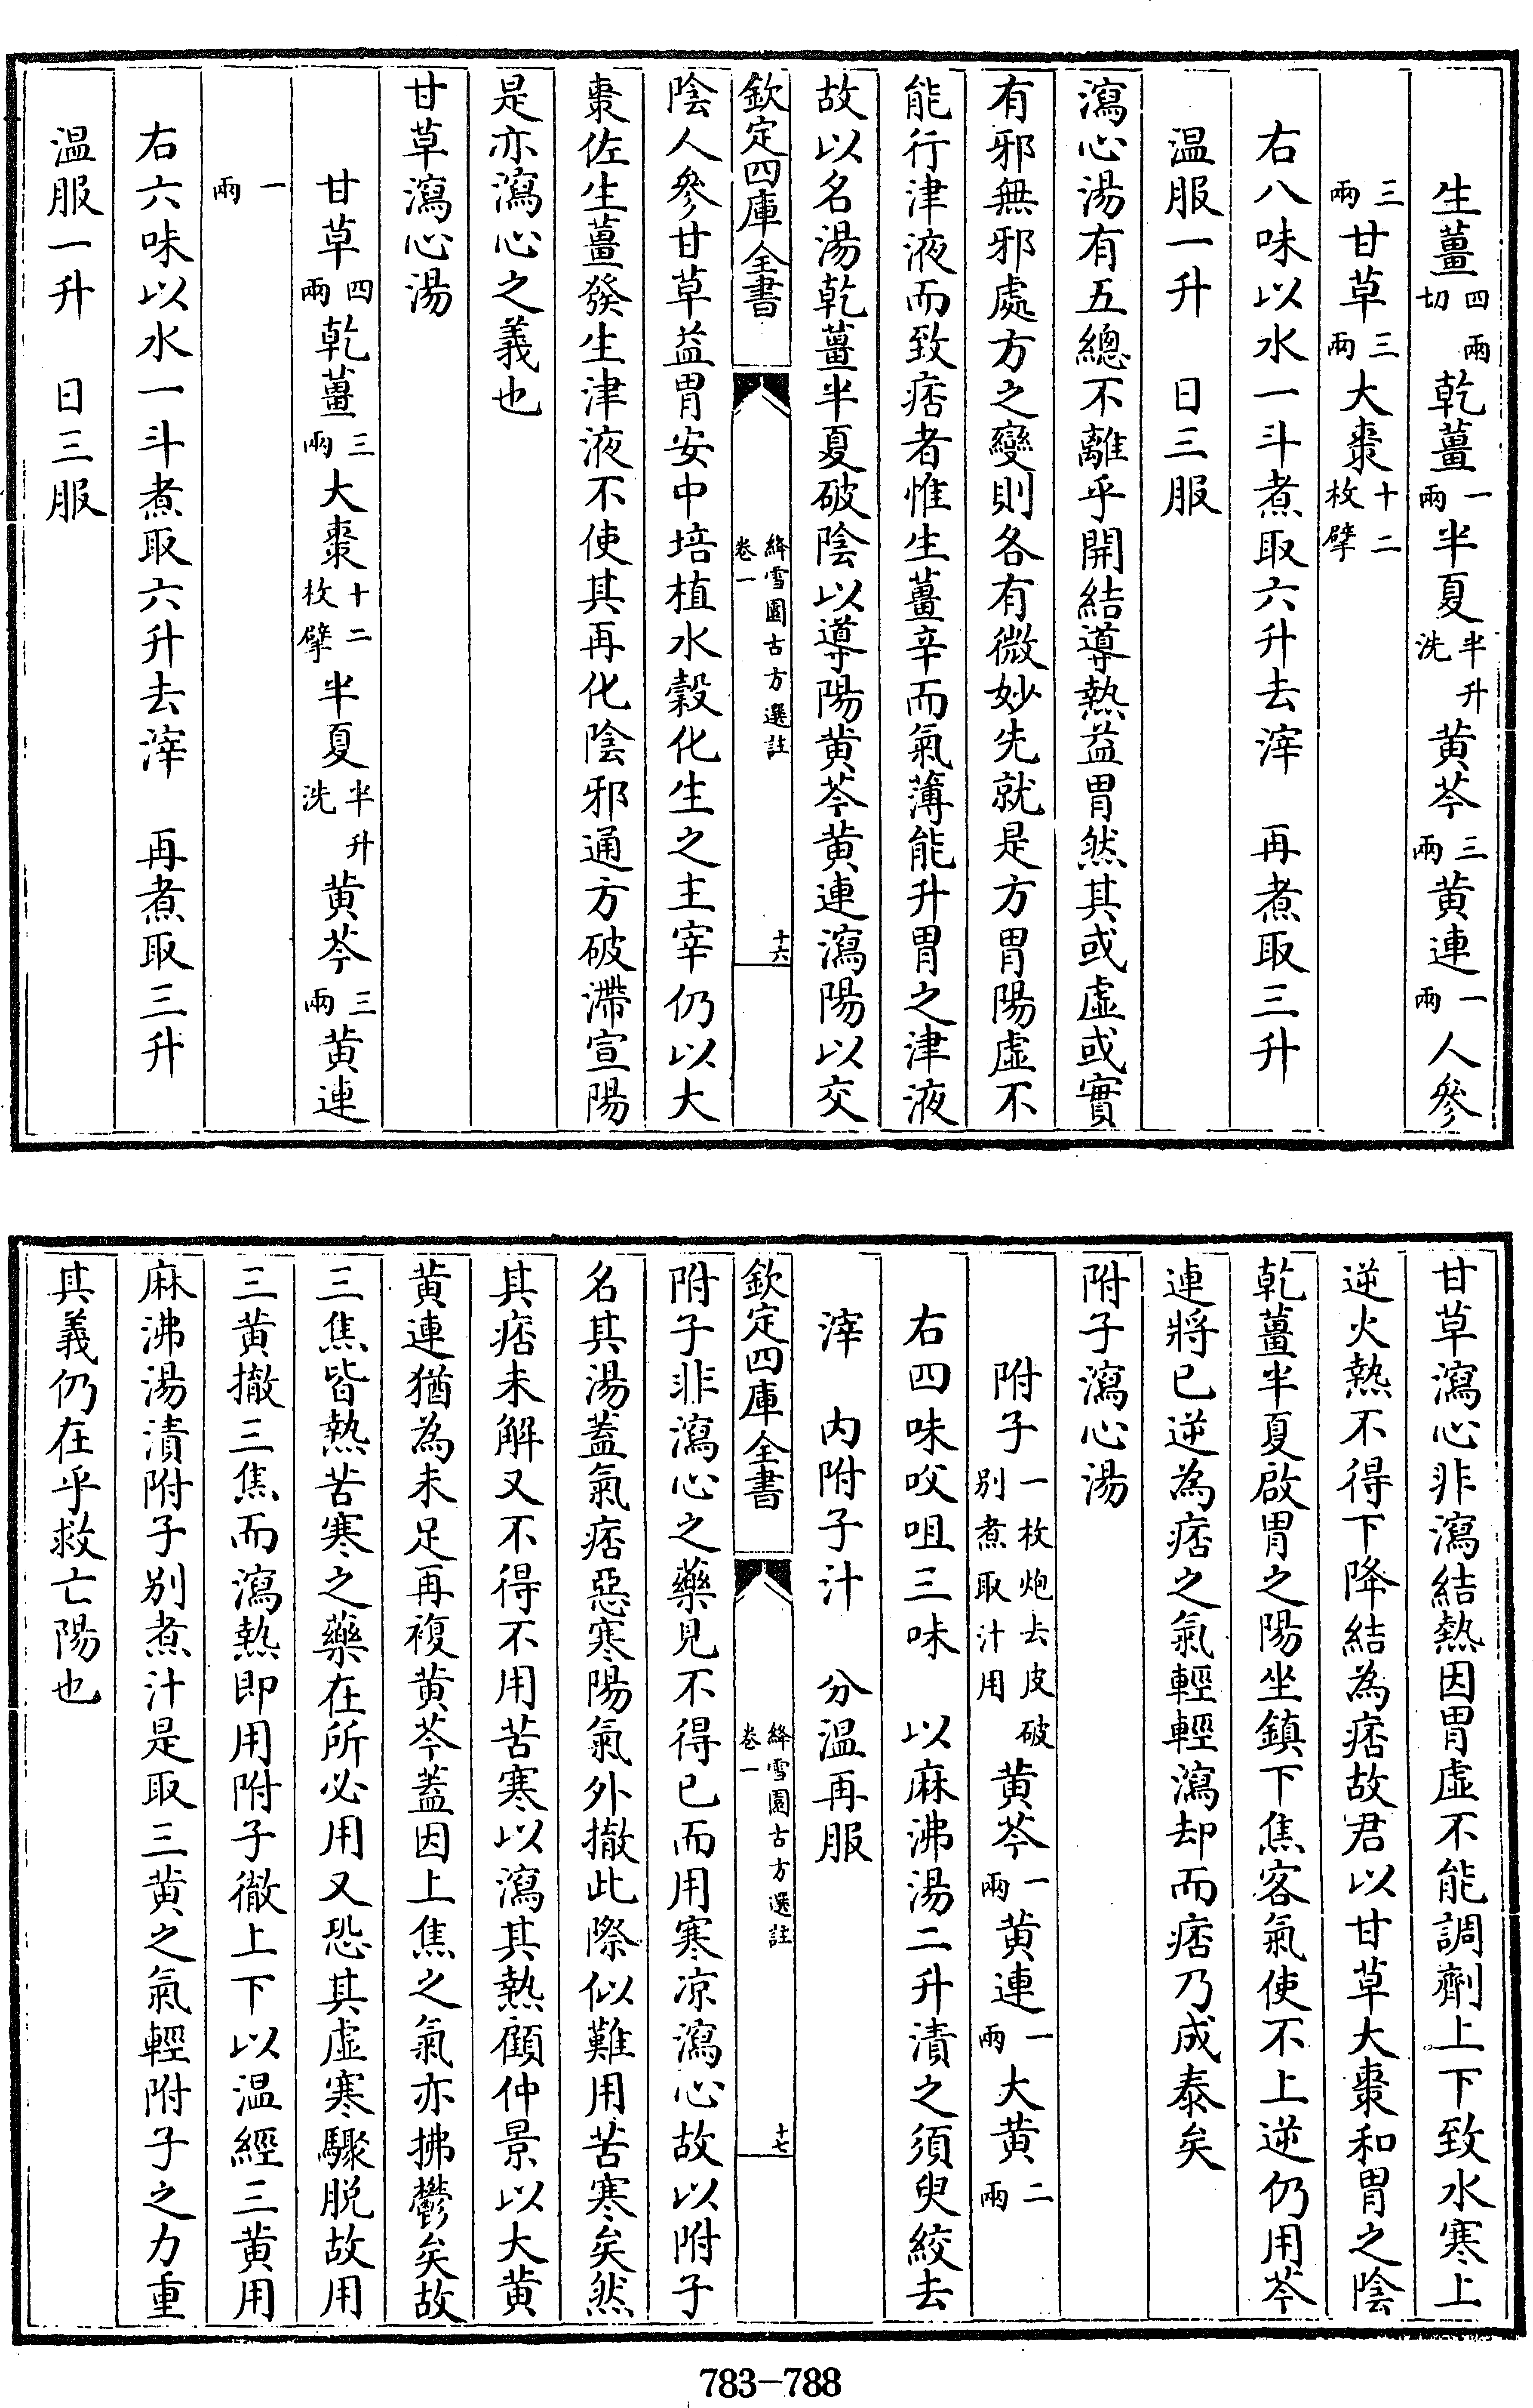 生薑四兩切乾薑一兩半夏半升洗黄芩三兩黄連一兩人參
三兩甘草三兩大棗十二枚擘
右八味以水一斗煮取六升去滓 再煮取三升
温服一升 日三服
瀉心湯有五總不離乎開結導熱益胃然其或虛或實
有邪無邪處方之變則各有微妙先就是方胃陽虛不
能行津液而致痞者惟生薑辛而氣薄能升胃之津液
故以名湯乾薑半夏破陰以導陽黄芩黄連瀉陽以交
欽定四庫全書 絳雪園古方選註卷一 十六
陰人參甘草益胃安中培植水穀化生之主宰仍以大
棗佐生薑發生津液不使其再化陰邪通方破滯宣陽
是亦瀉心之義也
甘草瀉心湯
甘草四兩乾薑三兩大棗十二枚擘半夏半升洗黄芩三兩黄連
一兩
右六味以水一斗煮取六升去滓 再煮取三升
温服一升 日三服
甘草瀉心非瀉結熱因胃虛不能調劑上下致水寒上
逆火熱不得下降結為痞故君以甘草大棗和胃之陰
乾薑半夏啟胃之陽坐鎮下焦客氣使不上逆仍用芩
連將已逆為痞之氣輕輕瀉却而痞乃成泰矣
附子瀉心湯
附子一枚炮去皮破别煮取汁用黄芩一兩黄連一兩大黄二兩
右四味㕮咀三味 以麻沸湯二升漬之須臾絞去
滓 内附子汁 分温再服
欽定四庫全書 絳雪園古方選註卷一 十七
附子非瀉心之藥見不得已而用寒凉瀉心故以附子
名其湯蓋氣痞惡寒陽氣外撤此際似難用苦寒矣然
其痞未解又不得不用苦寒以瀉其熱顧仲景以大黄
黄連猶為未足再複黄芩蓋因上焦之氣亦拂鬱矣故
三焦皆熱苦寒之藥在所必用又恐其虛寒驟脱故用
三黄撤三焦而瀉熱即用附子徹上下以温經三黄用
麻沸湯漬附子别煮汁是取三黄之氣輕附子之力重
其義仍在乎救亡陽也
783-788